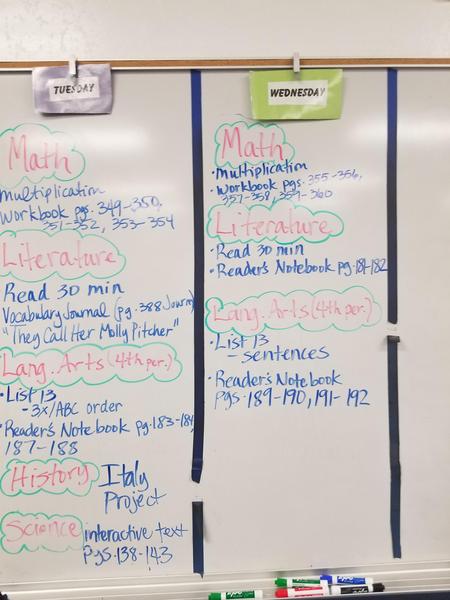 TUESDAY
Math
Multiplication
Workbook pgs. 349-350,
351-352, 353-354
Literature
Read 30 min
Vocabulary Journal (pg. 388 Journ
"They Call Her Molly Pitcher"
Lang. Arts (4th per.)
• List 13
- 3x/ABC order
• Reader's Notebook pg. 183-184
187-188
History Italy
Project
Science interactive text
pgs. 138-143
WEDNESDAY
Math
• Multiplication
• Workbook pgs. 355-356,
357-358, 359-360
Literature
• Read 30 min
• Reader's Notebook pg. 181-182
Lang. Arts (4th per.)
• List 13
- sentences
• Reader's Notebook
pgs. 189-190, 191-192